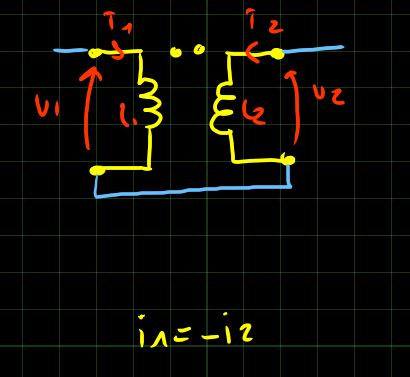 I1 I2
V1 L1 L2 V2
i1=-i2